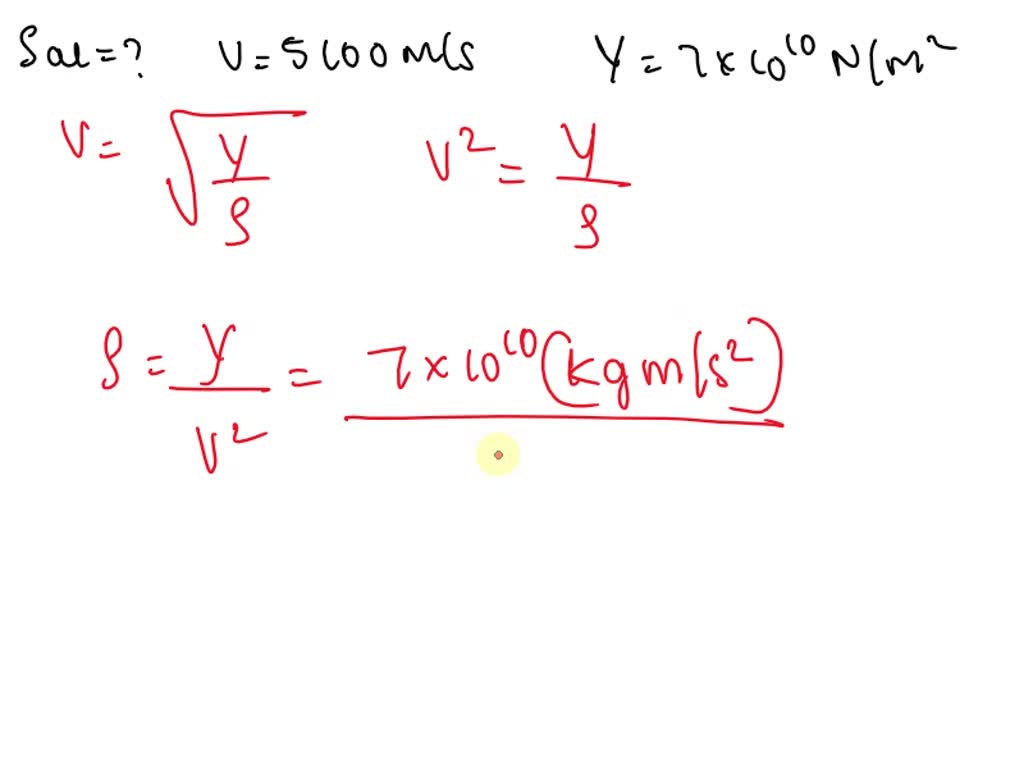 ρal = ? V = 5100 m/s Y = 7 × 10¹⁰ N/m²
V = √(Y/ρ) V² = Y/ρ
ρ = Y/V² = 7 × 10¹⁰ (kg m/s²)